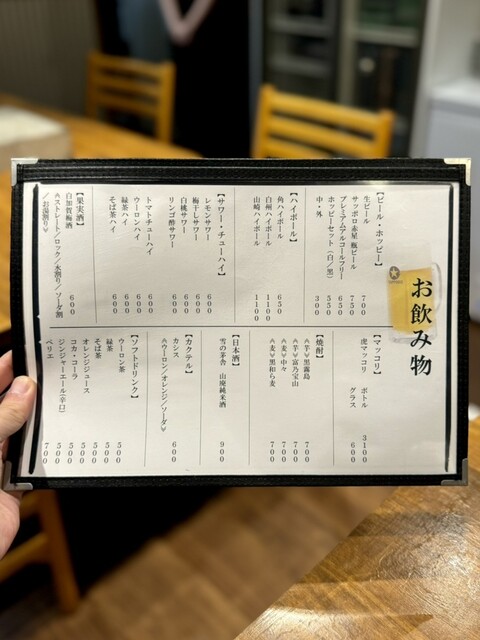 お飲み物
【ビール・ホッピー】
生ビール 700
サッポロ赤星 瓶ビール 750
プレミアムアルコールフリー 650
ホッピーセット（白／黒） 550
中・外 300
【ハイボール】
角ハイボール 650
白州ハイボール 1100
山崎ハイボール 1100
【サワー・チューハイ】
レモンサワー 600
梅干しサワー 600
白桃サワー 600
リンゴ酢サワー 600
トマトチューハイ 600
ウーロンハイ 600
緑茶ハイ 600
そば茶ハイ 600
【果実酒】
白加賀梅酒 600
≪ストレート／ロック／水割り／ソーダ割
／お湯割り≫
【マッコリ】
虎マッコリ ボトル 3100
グラス 600
【焼酎】
≪芋≫黒霧島 700
≪芋≫富乃宝山 700
≪麦≫中々 700
≪麦≫黒和ら麦 700
【日本酒】
雪の茅舎 山廃純米酒 900
【カクテル】
カシス 600
≪ウーロン／オレンジ／ソーダ≫
【ソフトドリンク】
ウーロン茶 500
緑茶 500
そば茶 500
オレンジジュース 500
コカ・コーラ 500
ジンジャーエール（辛口） 500
ペリエ 700